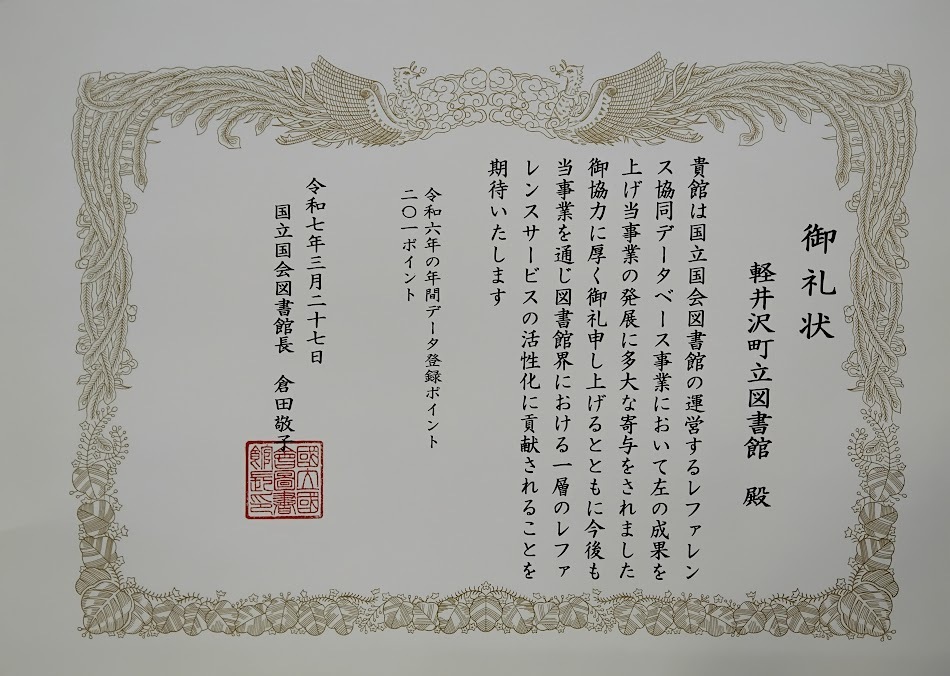 御礼状
軽井沢町立図書館 殿
貴館は国立国会図書館の運営するレファレン
ス協同データベース事業において左の成果を
上げ当事業の発展に多大な寄与をされました
御協力に厚く御礼申し上げるとともに今後も
当事業を通じ図書館界における一層のレファ
レンスサービスの活性化に貢献されることを
期待いたします
令和六年の年間データ登録ポイント
二〇一ポイント
令和七年三月二十七日
国立国会図書館長 倉田敬子
國立國
會圖書
館長印